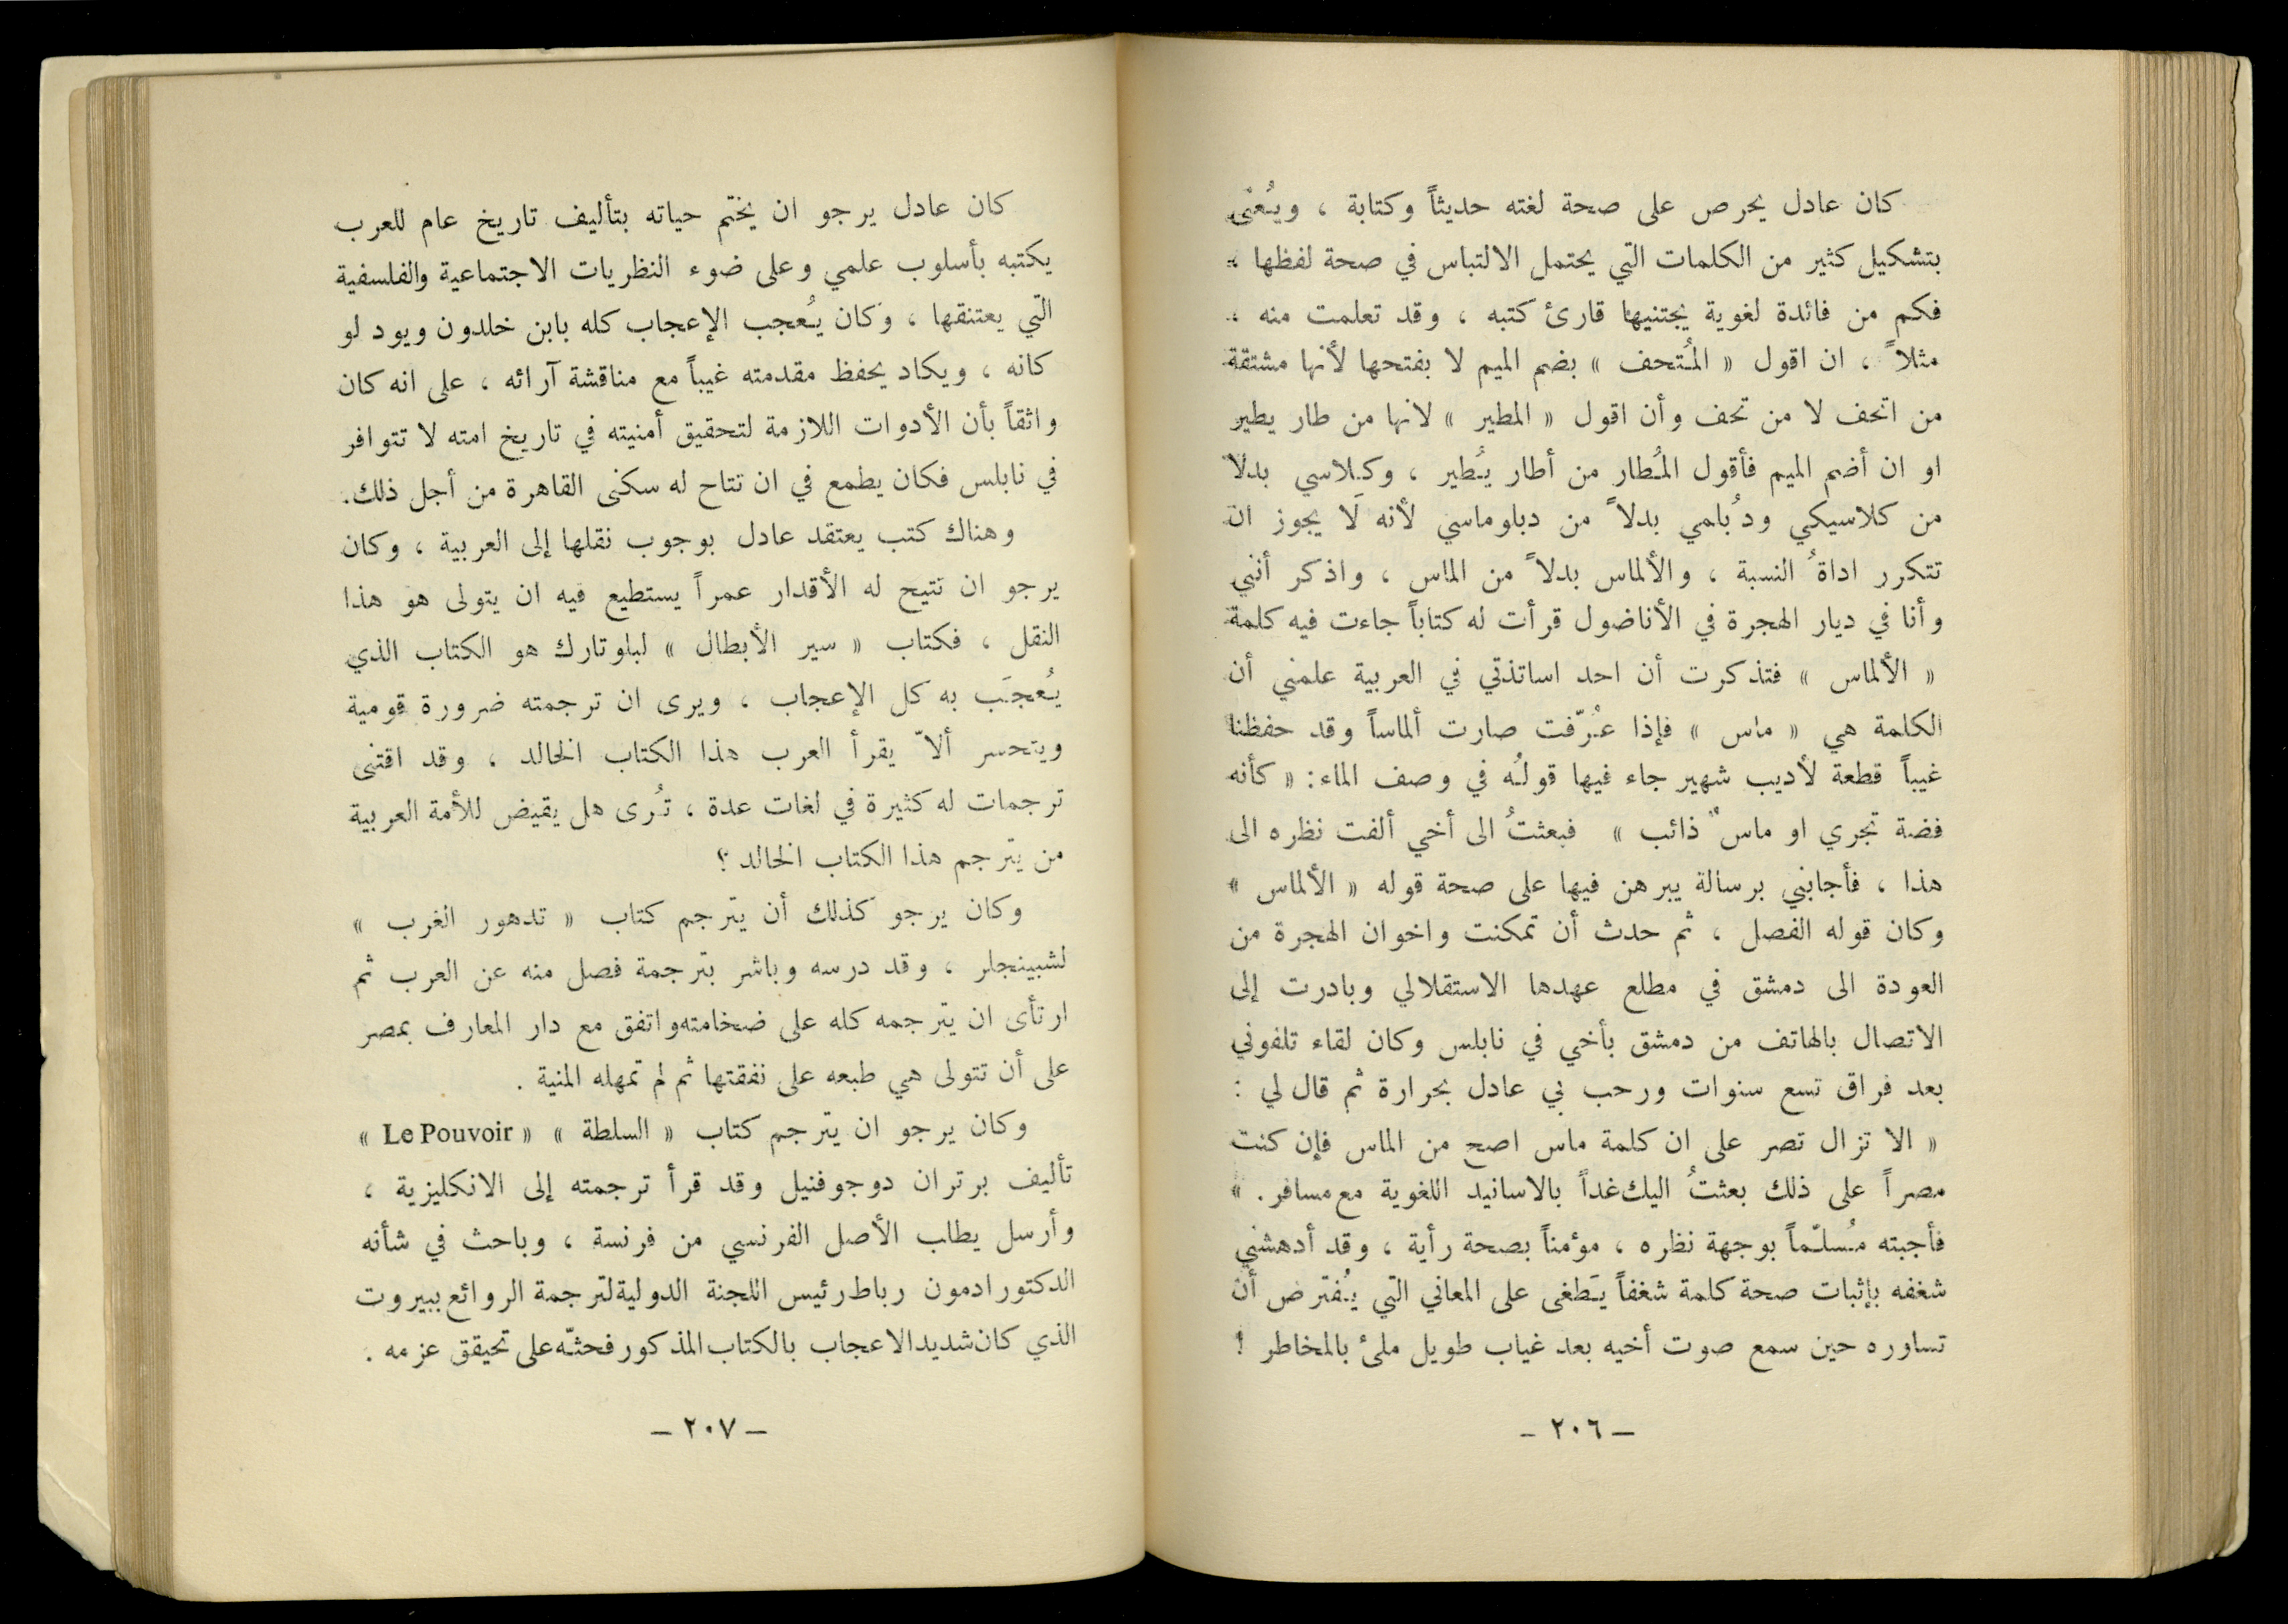 كان عادل يحرص على صحة لغته حديثاً وكتابة ، ويُعنى
بتشكيل كثير من الكلمات التي يحتمل الالتباس في صحة لفظها ،
فكم من فائدة لغوية يجتنيها قارئ كتبه ، وقد تعلمت منه ،
مثلاً ، ان اقول « المُتحف » بضم الميم لا بفتحها لأنها مشتقة
من اتحف لا من تحف وأن اقول « المطير » لانها من طار يطير
او ان أضم الميم فأقول المُطار من أطار يُطير ، وكلاسي بدلاً
من كلاسيكي ودُبلمي بدلاً من دبلوماسي لأنه لا يجوز ان
تتكرر اداةُ النسبة ، والألماس بدلاً من الماس ، واذكر أنني
وأنا في ديار الهجرة في الأناضول قرأت له كتاباً جاءت فيه كلمة
« الألماس » فتذكرت أن احد اساتذتي في العربية علمني أن
الكلمة هي « ماس » فإذا عُرّفت صارت ألماساً وقد حفظنا
غيباً قطعة لأديب شهير جاء فيها قولُه في وصف الماء : « كأنه
فضة تجري او ماسٌ ذائب » فبعثتُ الى أخي ألفت نظره الى
هذا ، فأجابني برسالة يبرهن فيها على صحة قوله « الألماس »
وكان قوله الفصل ، ثم حدث أن تمكنت واخوان الهجرة من
العودة الى دمشق في مطلع عهدها الاستقلالي وبادرت إلى
الاتصال بالهاتف من دمشق بأخي في نابلس وكان لقاء تلفوني
بعد فراق تسع سنوات ورحب بي عادل بحرارة ثم قال لي :
« الا تزال تصر على ان كلمة ماس اصح من الماس فإن كنت
مصراً على ذلك بعثتُ اليك غداً بالاسانيد اللغوية مع مسافر . »
فأجبته مُسلّماً بوجهة نظره ، مؤمناً بصحة رأية ، وقد أدهشني
شغفه بإثبات صحة كلمة شغفاً يَطغى على المعاني التي يُفترض أن
تساوره حين سمع صوت أخيه بعد غياب طويل ملئ بالمخاطر !
– ٢٠٦ –
كان عادل يرجو ان يختم حياته بتأليف تاريخ عام للعرب
يكتبه بأسلوب علمي وعلى ضوء النظريات الاجتماعية والفلسفية
التي يعتنقها ، وكان يُعجب الإعجاب كله بابن خلدون ويود لو
كانه ، ويكاد يحفظ مقدمته غيباً مع مناقشة آرائه ، على انه كان
واثقاً بأن الأدوات اللازمة لتحقيق أمنيته في تاريخ امته لا تتوافر
في نابلس فكان يطمع في ان تتاح له سكنى القاهرة من أجل ذلك .
وهناك كتب يعتقد عادل بوجوب نقلها إلى العربية ، وكان
يرجو ان تتيح له الأقدار عمراً يستطيع فيه ان يتولى هو هذا
النقل ، فكتاب « سير الأبطال » لبلوتارك هو الكتاب الذي
يُعجَب به كل الإعجاب ، ويرى ان ترجمته ضرورة قومية
ويتحسر ألاّ يقرأ العرب هذا الكتاب الخالد ، وقد اقتنى
ترجمات له كثيرة في لغات عدة ، تُرى هل يقيض للأمة العربية
من يترجم هذا الكتاب الخالد ؟
وكان يرجو كذلك أن يترجم كتاب « تدهور الغرب »
لشبينجلر ، وقد درسه وباشر بترجمة فصل منه عن العرب ثم
ارتأى ان يترجمه كله على ضخامته واتفق مع دار المعارف بمصر
على أن تتولى هي طبعه على نفقتها ثم لم تمهله المنية .
وكان يرجو ان يترجم كتاب « السلطة » « Le Pouvoir »
تأليف برتران دوجوفنيل وقد قرأ ترجمته إلى الانكليزية ،
وأرسل يطلب الأصل الفرنسي من فرنسة ، وباحث في شأنه
الدكتور ادمون رباط رئيس اللجنة الدولية لترجمة الروائع ببيروت
الذي كان شديد الاعجاب بالكتاب المذكور فحثّه على تحيقق عزمه .
– ٢٠٧ –